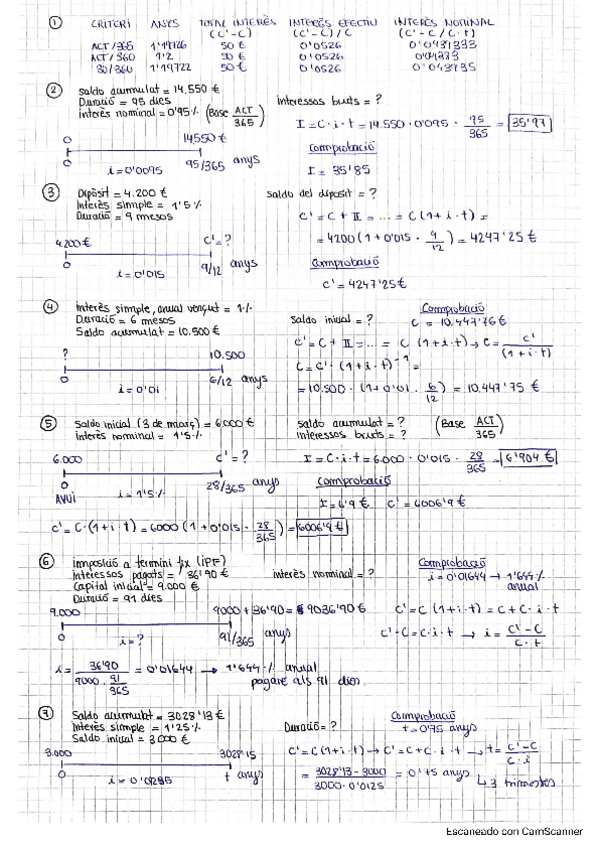 ① CRITERI ANYS TOTAL INTERÈS INTERÈS EFECTIU INTERÈS NOMINAL
(C'-C) (C'-C)/C (C'-C/C·t)
ACT/365 1'19726 50 € 0'0526
ACT/360 1'2 50 € 0'0526
30/360 1'19722 50 € 0'0526
② Saldo acumulat = 14.550 €
Duració = 95 dies
interès nominal = 0'95% (Base ACT/365)
interessos bruts = ?
I = C·i·t = 14.550 · 0'0095 · 95/365 = 35'97
Comprobació
I = 35'85
0 14.550 €
0 95/365 anys
i = 0'0095
③ Dipòsit = 4.200 €
Interès simple = 1'5%
Duració = 9 mesos
saldo del dipòsit = ?
C' = C + II = ... = C (1 + i · t) =
= 4200 (1 + 0'015 · 9/12) = 4247'25 €
Comprobació
C' = 4247'25 €
4.200 € C' = ?
0 9/12 anys
i = 0'015
④ interès simple, anual vençut = 1%
Duració = 6 mesos
Saldo acumulat = 10.500 €
Saldo inicial = ?
Comprobació
C = 10.447'76 €
C' = C + II = ... = C (1 + i · t) → C = C'/(1 + i · t)
C = C' · (1 + i · t)⁻¹ =
= 10.500 · (1 + 0'01 · 6/12) = 10.447'75 €
? 10.500
0 6/12 anys
i = 0'01
⑤ Saldo inicial (3 de març) = 6.000 €
interès nominal = 1'5%
saldo acumulat = ? (Base ACT/365)
interessos bruts = ?
I = C · i · t = 6.000 · 0'015 · 28/365 = 6'904 €
Comprobació
I = 6'9 € C' = 6006'9 €
6.000 C' = ?
0 28/365 anys
AVUI i = 1'5%
C' = C · (1 + i · t) = 6000 (1 + 0'015 · 28/365) = 6006'9 €
⑥ imposició a termini fix (IPF)
Interessos pagats = 36'90 €
Capital inicial = 9.000 €
Duració = 91 dies
interès nominal = ?
Comprobació
i = 0'01644 → 1'644% anual
9.000 9000 + 36'90 = 9036'90 €
0 91/365 anys
i = ?
C' = C (1 + i · t) = C + C · i · t
C' - C = C · i · t → i = C' - C / C · t
i = 36'90 / 9000 · 91/365 = 0'01644 → 1'644% anual
pagaré als 91 dies.
⑦ Saldo acumulat = 3028'13 €
Interès simple = 1'25%
Saldo inicial = 3000 €
Duració = ?
Comprobació
t = 0'75 anys
C' = C (1 + i · t) → C' = C + C · i · t → t = C' - C / C · i
= 3028'13 - 3000 / 3000 · 0'0125 = 0'75 anys
↳ 3 trimestres
3.000 3028'13
0 t anys
Escaneado con CamScanner